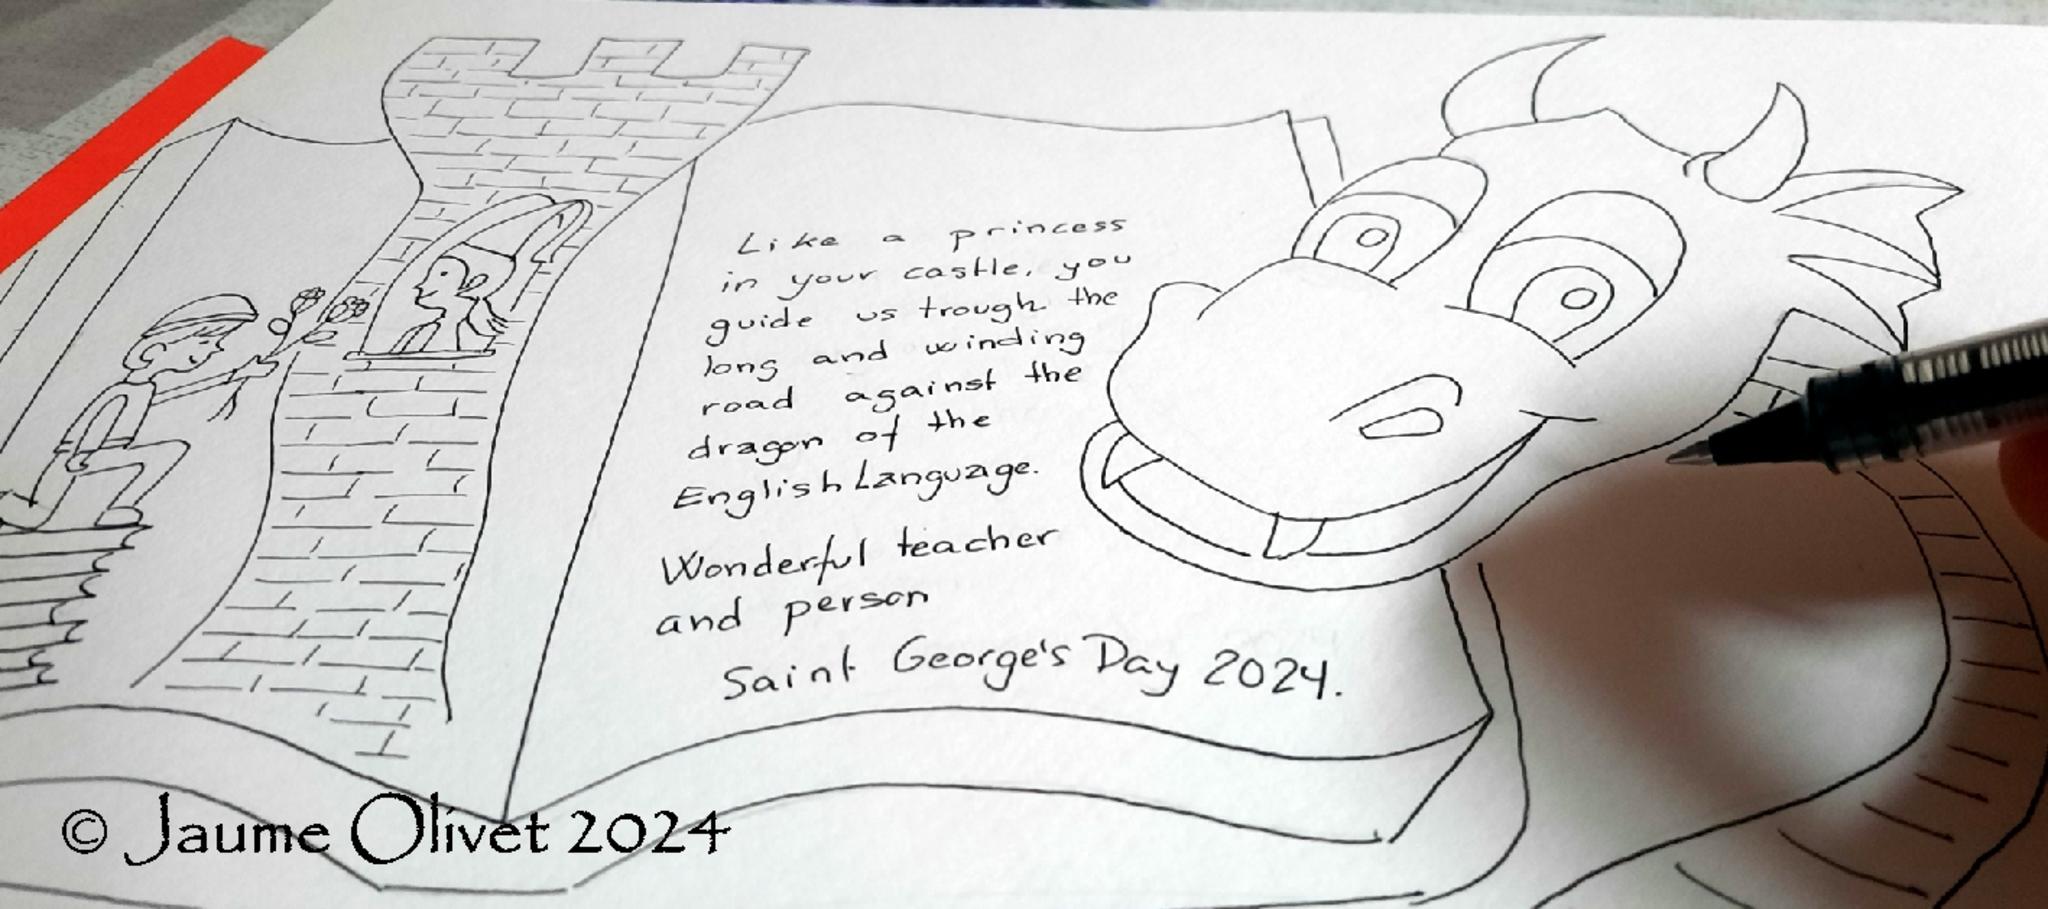 Like a princess
in your castle, you
guide us trough the
long and winding
road against the
dragon of the
English Language.
Wonderful teacher
and person
Saint George's Day 2024.
© Jaume Olivet 2024